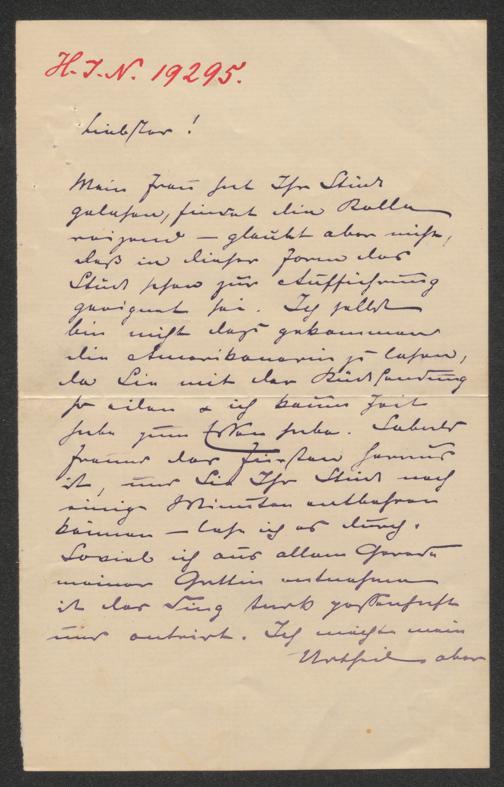 H.I.N. 19295.
Liebster!
Mein Frau hat Ihr Stück
gelesen, findet die Rolle
reizend – glaubt aber nicht,
daß in dieser Form das
Stück schon zur Aufführung
geeignet sei. Ich selbst
bin nicht dazu gekommen
die Amerikanerin zu lesen,
da Sie mit der Rücksendung
so eilen & ich kaum Zeit
habe zum Essen habe. Sobald
der Fürsten heraus
ist, und Sie Ihr Stück noch
einige Minuten entbehren
können – lese ich es durch.
Soviel ich aus allem Gerede
meiner Gattin entnehme
ist das Ding stark possenhaft
und outrirt. Ich möchte mein
Urtheil aber